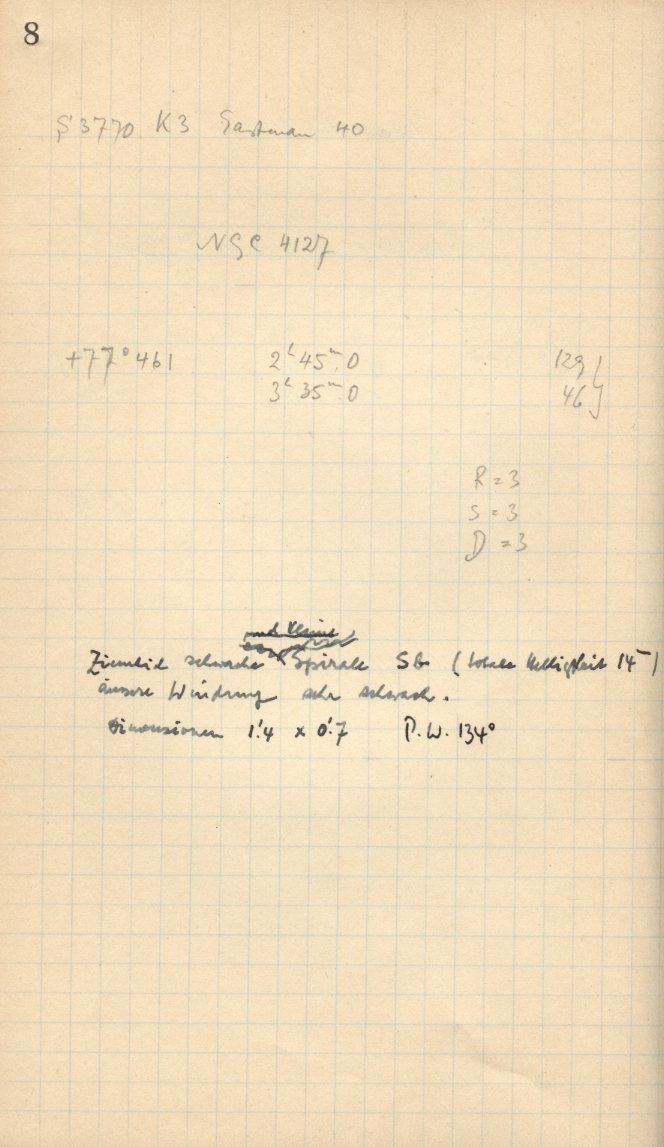 8
3770 K3 Eastman 40
NGC 4127
+77° 461 2ʰ 45ᵐ.0 129
3ʰ 35ᵐ.0 46
R = 3
S = 3
D = 3
und kleine
Ziemlich schwache Spirale Sb (totale Helligkeit 14
äussere Windung sehr schwach.
Dimensionen 1'.4 x 0'.7 P.W. 134°